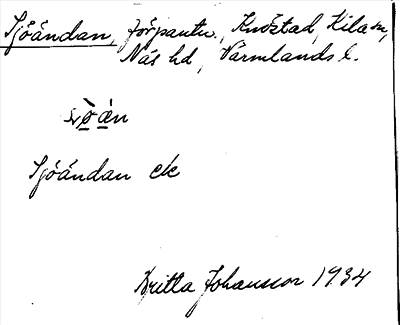 Sjöändan, förpantn., Knöstad, Kila sn,
Näs hd, Värmlands l.
Sjöändan ek
Britta Johansson 1934